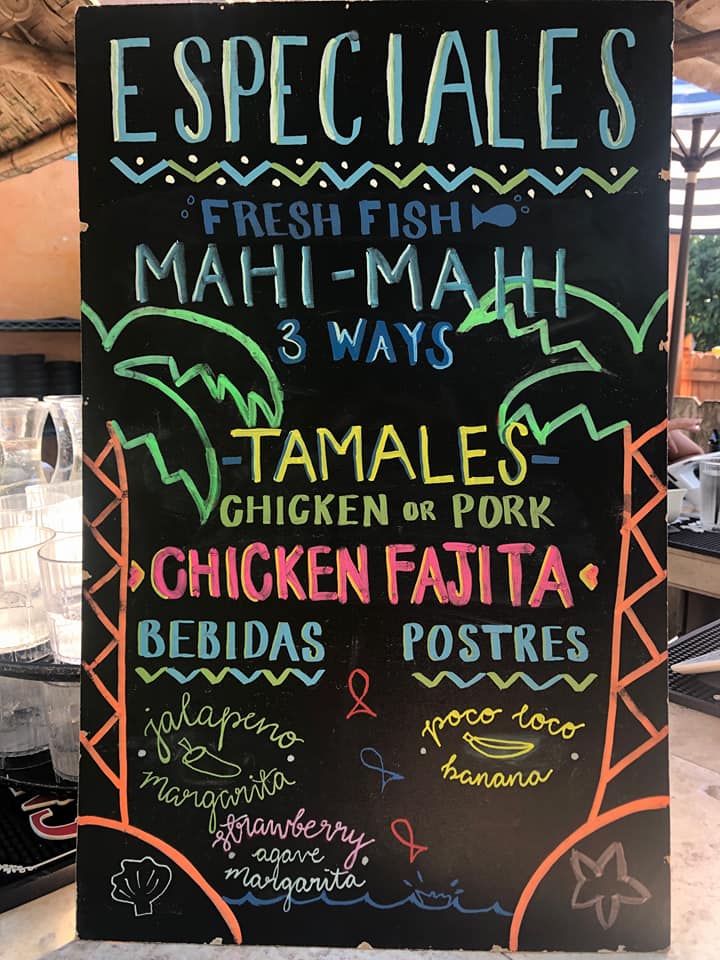 ESPECIALES
FRESH FISH
MAHI-MAHI
3 WAYS
-TAMALES-
CHICKEN OR PORK
CHICKEN FAJITA
BEBIDAS
POSTRES
jalapeno
margarita
poco loco
banana
strawberry
agave
margarita